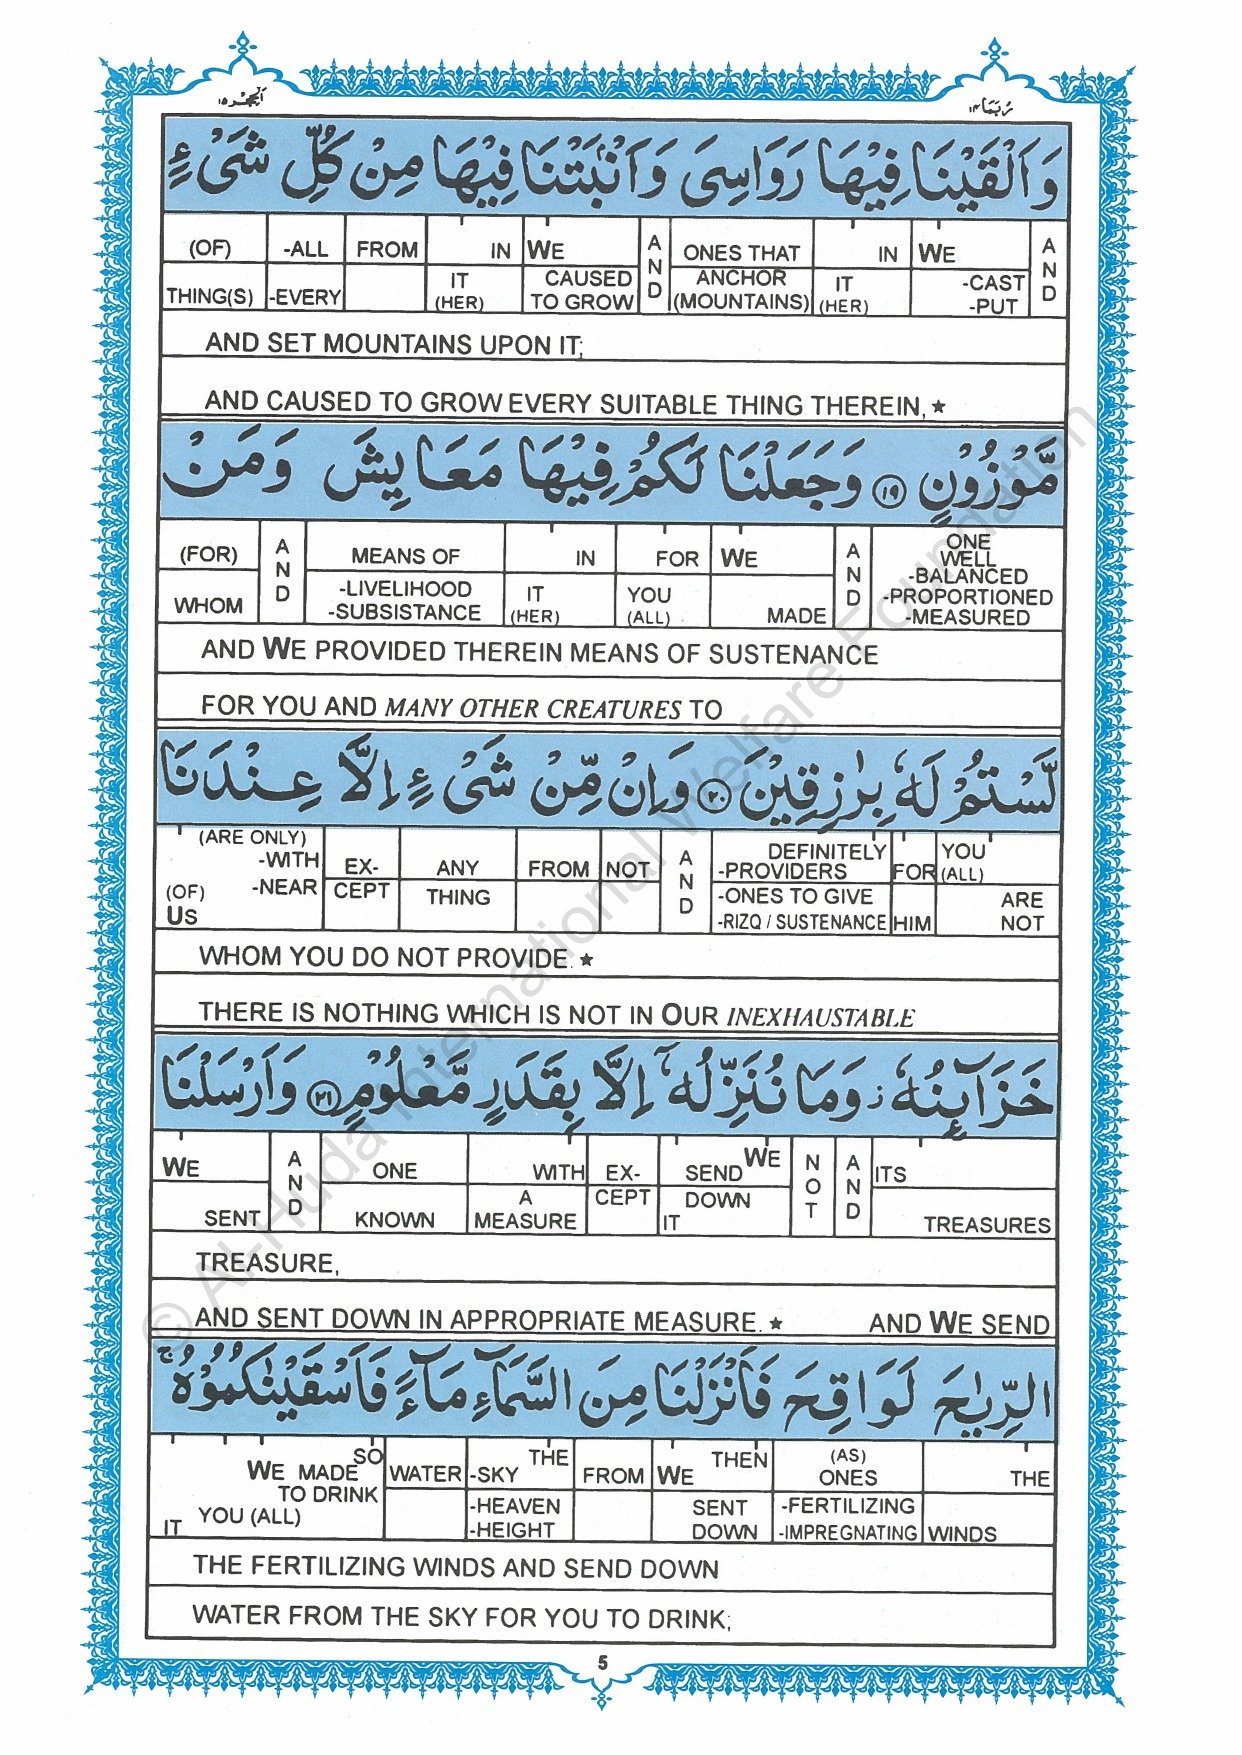 الحجر ١٥
ربما ١٤
وَاَلْقَيْنَا فِيْهَا رَوَاسِيَ وَاَنْۢبَتْنَا فِيْهَا مِنْ كُلِّ شَيْءٍ
(OF) -ALL FROM IN WE A ONES THAT IN WE A
THING(S) -EVERY IT (HER) CAUSED TO GROW N D ANCHOR (MOUNTAINS) IT (HER) -CAST -PUT N D
AND SET MOUNTAINS UPON IT;
AND CAUSED TO GROW EVERY SUITABLE THING THEREIN, ★
مَّوْزُوْنٍ ١٩ وَجَعَلْنَا لَكُمْ فِيْهَا مَعَايِشَ وَمَنْ
(FOR) A MEANS OF IN FOR WE A ONE WELL
WHOM N D -LIVELIHOOD -SUBSISTANCE IT (HER) YOU (ALL) MADE N D -BALANCED -PROPORTIONED -MEASURED
AND WE PROVIDED THEREIN MEANS OF SUSTENANCE
FOR YOU AND MANY OTHER CREATURES TO
لَّسْتُمْ لَهٗ بِرٰزِقِيْنَ ٢٠ وَاِنْ مِّنْ شَيْءٍ اِلَّا عِنْدَنَا
(ARE ONLY) -WITH EX- ANY FROM NOT A DEFINITELY -PROVIDERS FOR YOU (ALL)
(OF) US -NEAR CEPT THING N D -ONES TO GIVE -RIZQ / SUSTENANCE HIM ARE NOT
WHOM YOU DO NOT PROVIDE. ★
THERE IS NOTHING WHICH IS NOT IN OUR INEXHAUSTABLE
خَزَآئِنُهٗ ز وَمَا نُنَزِّلُهٗٓ اِلَّا بِقَدَرٍ مَّعْلُوْمٍ ٢١ وَاَرْسَلْنَا
WE A ONE WITH EX- SEND WE N A ITS
SENT N D KNOWN A MEASURE CEPT DOWN IT O T N D TREASURES
TREASURE,
AND SENT DOWN IN APPROPRIATE MEASURE. ★ AND WE SEND
الرِّيٰحَ لَوَاقِحَ فَاَنْزَلْنَا مِنَ السَّمَآءِ مَآءً فَاَسْقَيْنٰكُمُوْهُ ج
SO WE MADE TO DRINK WATER THE -SKY FROM WE THEN (AS) ONES THE
IT YOU (ALL) -HEAVEN -HEIGHT SENT DOWN -FERTILIZING -IMPREGNATING WINDS
THE FERTILIZING WINDS AND SEND DOWN
WATER FROM THE SKY FOR YOU TO DRINK;
5
© Al-Huda International Welfare Foundation